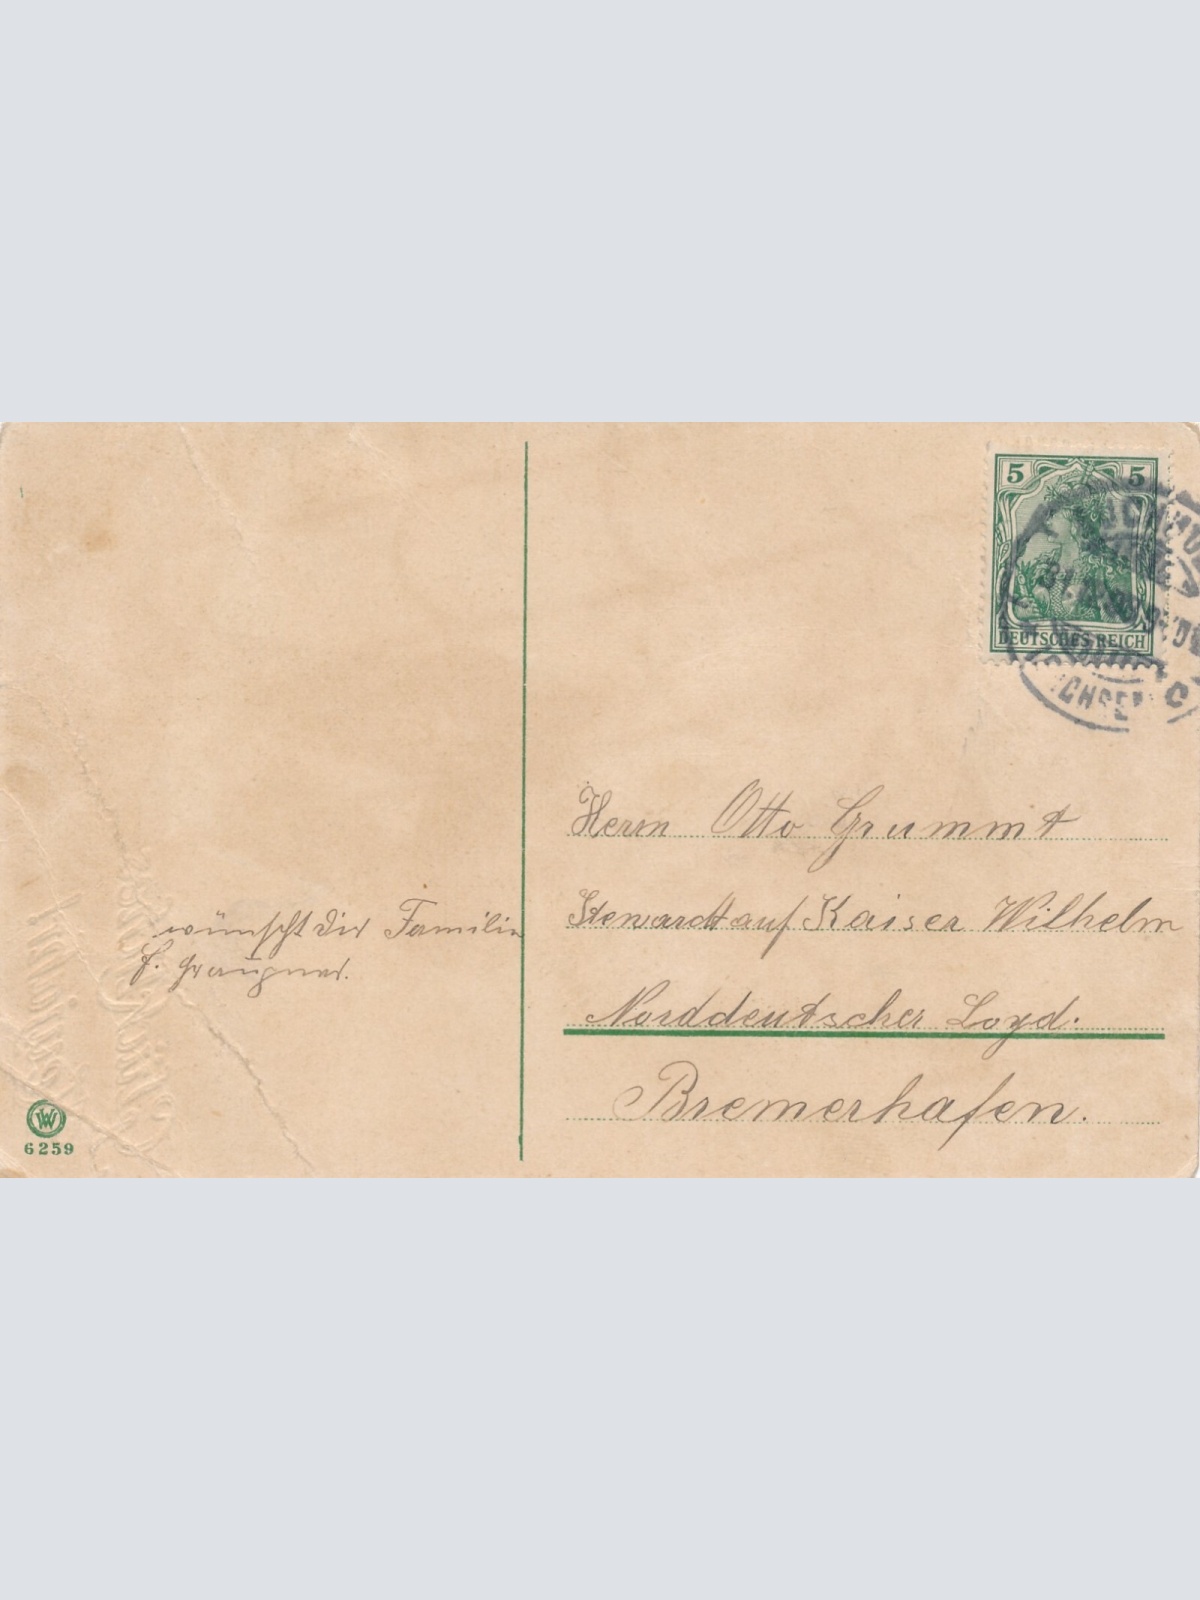 5 5
DEUTSCHES REICH
wünscht dir Familie
F. Graupner.
Herrn Otto Grummt
Stewardt auf Kaiser Wilhelm
Norddeutscher Loyd.
Bremerhafen.
W
6259